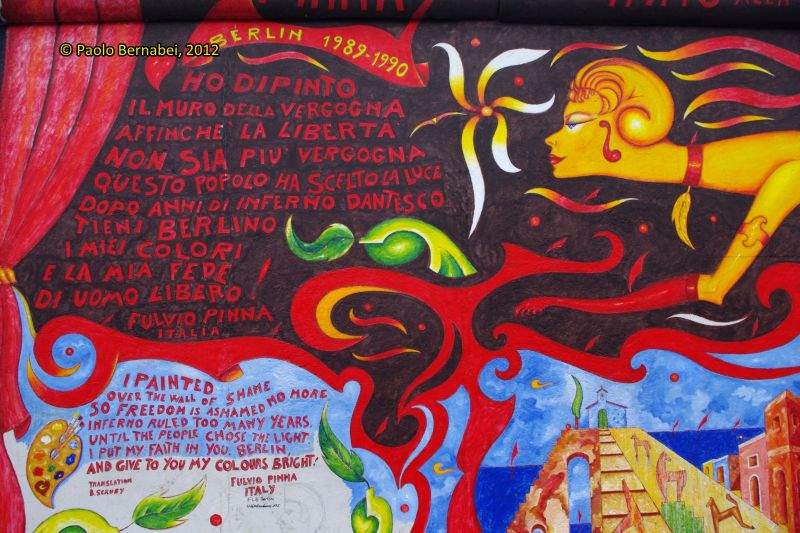 © Paolo Bernabei, 2012
BERLIN 1989-1990
HO DIPINTO
IL MURO DELLA VERGOGNA
AFFINCHE' LA LIBERTA'
NON SIA PIU' VERGOGNA
QUESTO POPOLO HA SCELTO LA LUCE
DOPO ANNI DI INFERNO DANTESCO
TIENI BERLINO
I MIEI COLORI
E LA MIA FEDE
DI UOMO LIBERO!
FULVIO PINNA
ITALIA
I PAINTED
OVER THE WALL OF SHAME
SO FREEDOM IS ASHAMED NO MORE
INFERNO RULED TOO MANY YEARS
UNTIL THE PEOPLE CHOSE THE LIGHT.
I PUT MY FAITH IN YOU, BERLIN,
AND GIVE TO YOU MY COLOURS BRIGHT!
TRANSLATION
FULVIO PINNA
ITALY